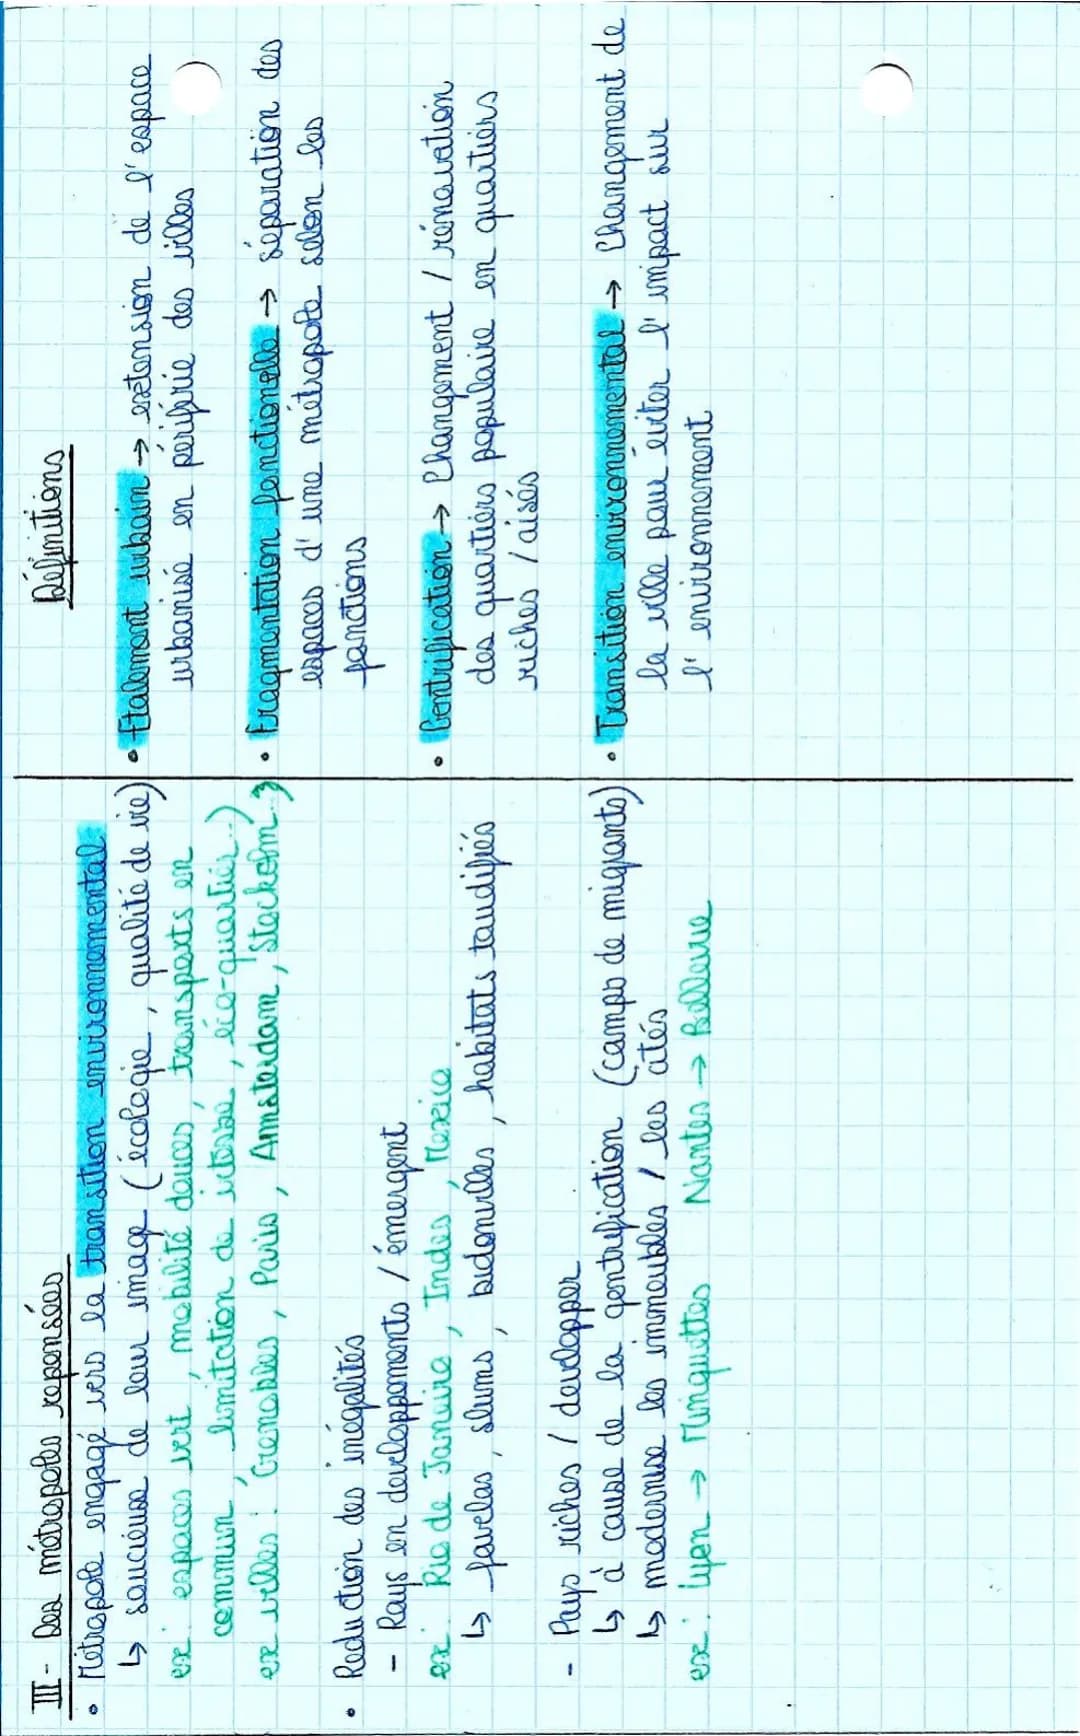 III - Des métropoles repensées
• Métropole engagé vers la transition environnemental:
↳ soucieuse de leur image (écologie, qualité de vie)
ex: espaces vert, mobilité douces, transports en
commun, limitation de vitesse, éco-quartier...)
ex villes: Grenobles, Paris, Amsterdam, Stockolm...
• Réduction des inégalités
- Pays en developpements / émergent
ex: Rio de Janeiro, Indes, Mexico
↳ favelas, slums, bidonvilles, habitats taudifiés
- Pays riches / developper
↳ à cause de la gentrification (camps de migrants)
↳ modernise les immeubles / les cités
ex: Lyon → Minguettes Nantes → Bellevue
Définitions
• Etalement urbain → extension de l'espace
urbanisé en périférie des villes
• Fragmentation fonctionelle → séparation des
espaces d'une métropole selon les
fonctions
• Gentrification → Changement / rénovation
des quartiers populaire en quartiers
riches / aisés
• Transition environnemental → Changement de
la ville pour éviter l'impact sur
l'environnement